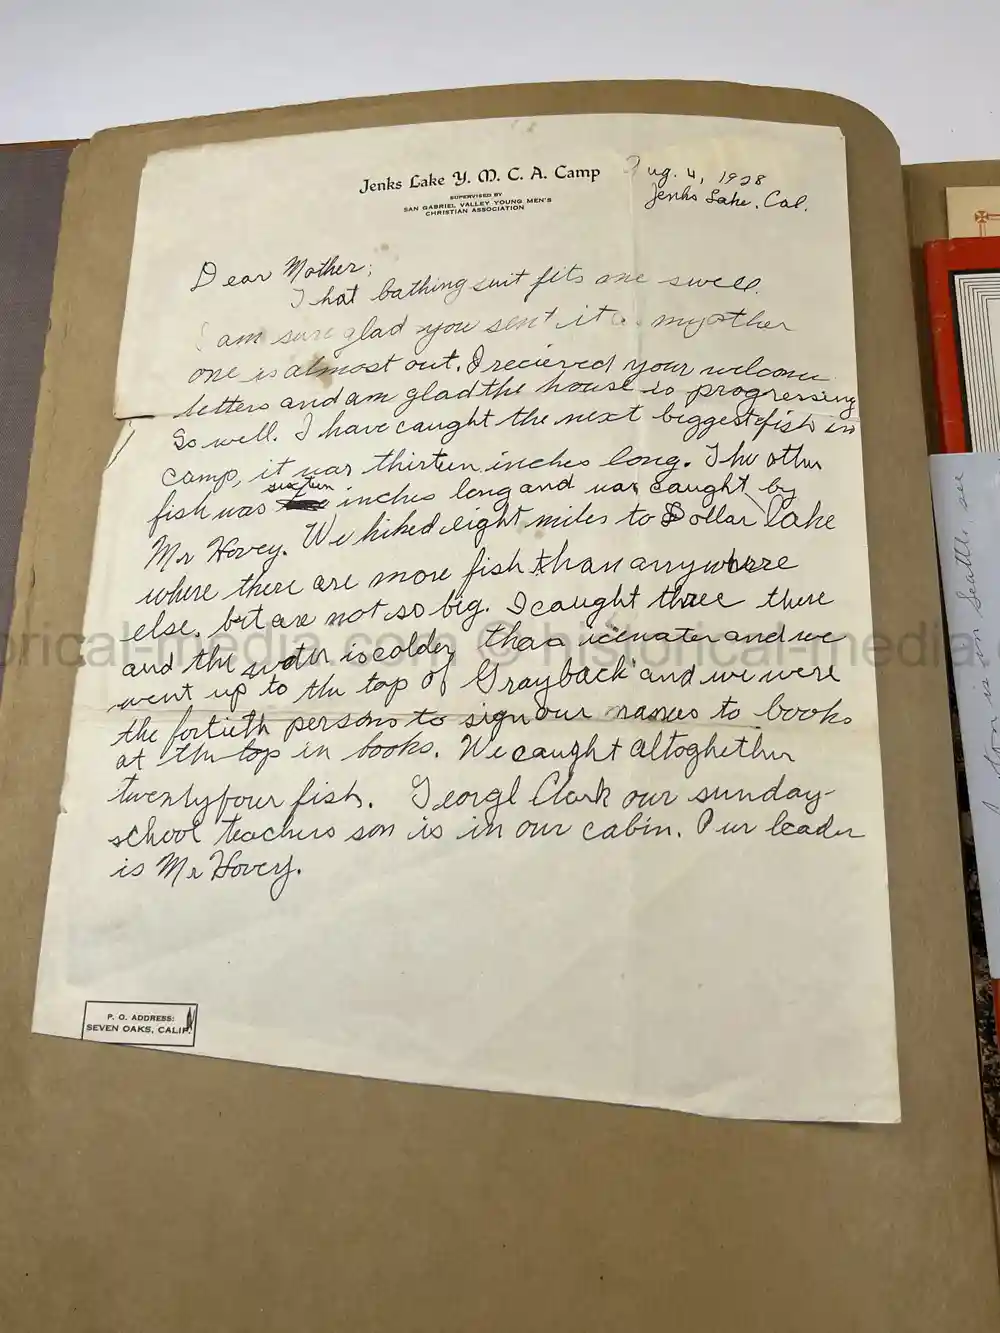 Jenks Lake Y. M. C. A. Camp
SUPERVISED BY
SAN GABRIEL VALLEY YOUNG MEN'S
CHRISTIAN ASSOCIATION
Aug. 4, 1928
Jenks Lake, Cal.
Dear Mother;
That bathing suit fits me swell.
I am sure glad you sent it my other
one is almost out. I recieved your welcome
letters and am glad the house is progressing
so well. I have caught the next biggest fish in
camp, it was thirteen inches long. The other
fish was sixteen inches long and was caught by
Mr Hovey. We hiked eight miles to Dollar Lake
where there are more fish than anywhere
else, but are not so big. I caught three there
and the water is colder than icewater and we
went up to the top of Grayback and we were
the fortieth persons to sign our names to books
at the top in books. We caught altoghether
twentyfour fish. George Clark our sunday-
school teachers son is in our cabin. Our leader
is Mr Hovey.
P. O. ADDRESS:
SEVEN OAKS, CALIF.
historical-media.com © historical-media.
son is in Seattle, see